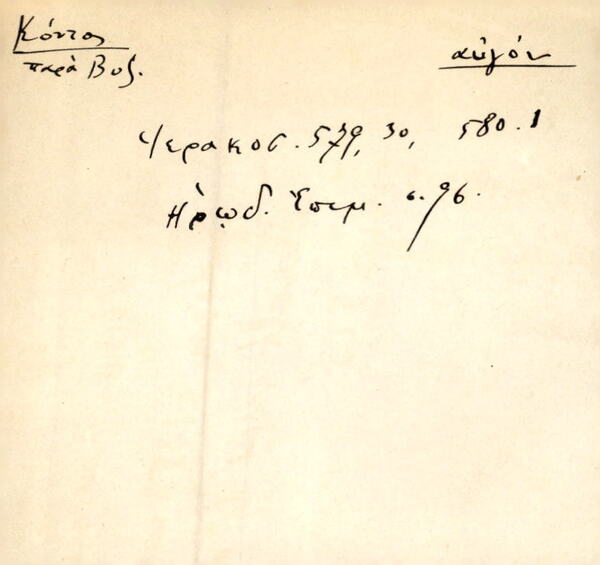 Κόντος
παρὰ Βυζ.
αὐγόν
Ἱερακοσ. 579, 30, 580. 1
Ἡρῳδ. Ἐπιμ. σ. 96.